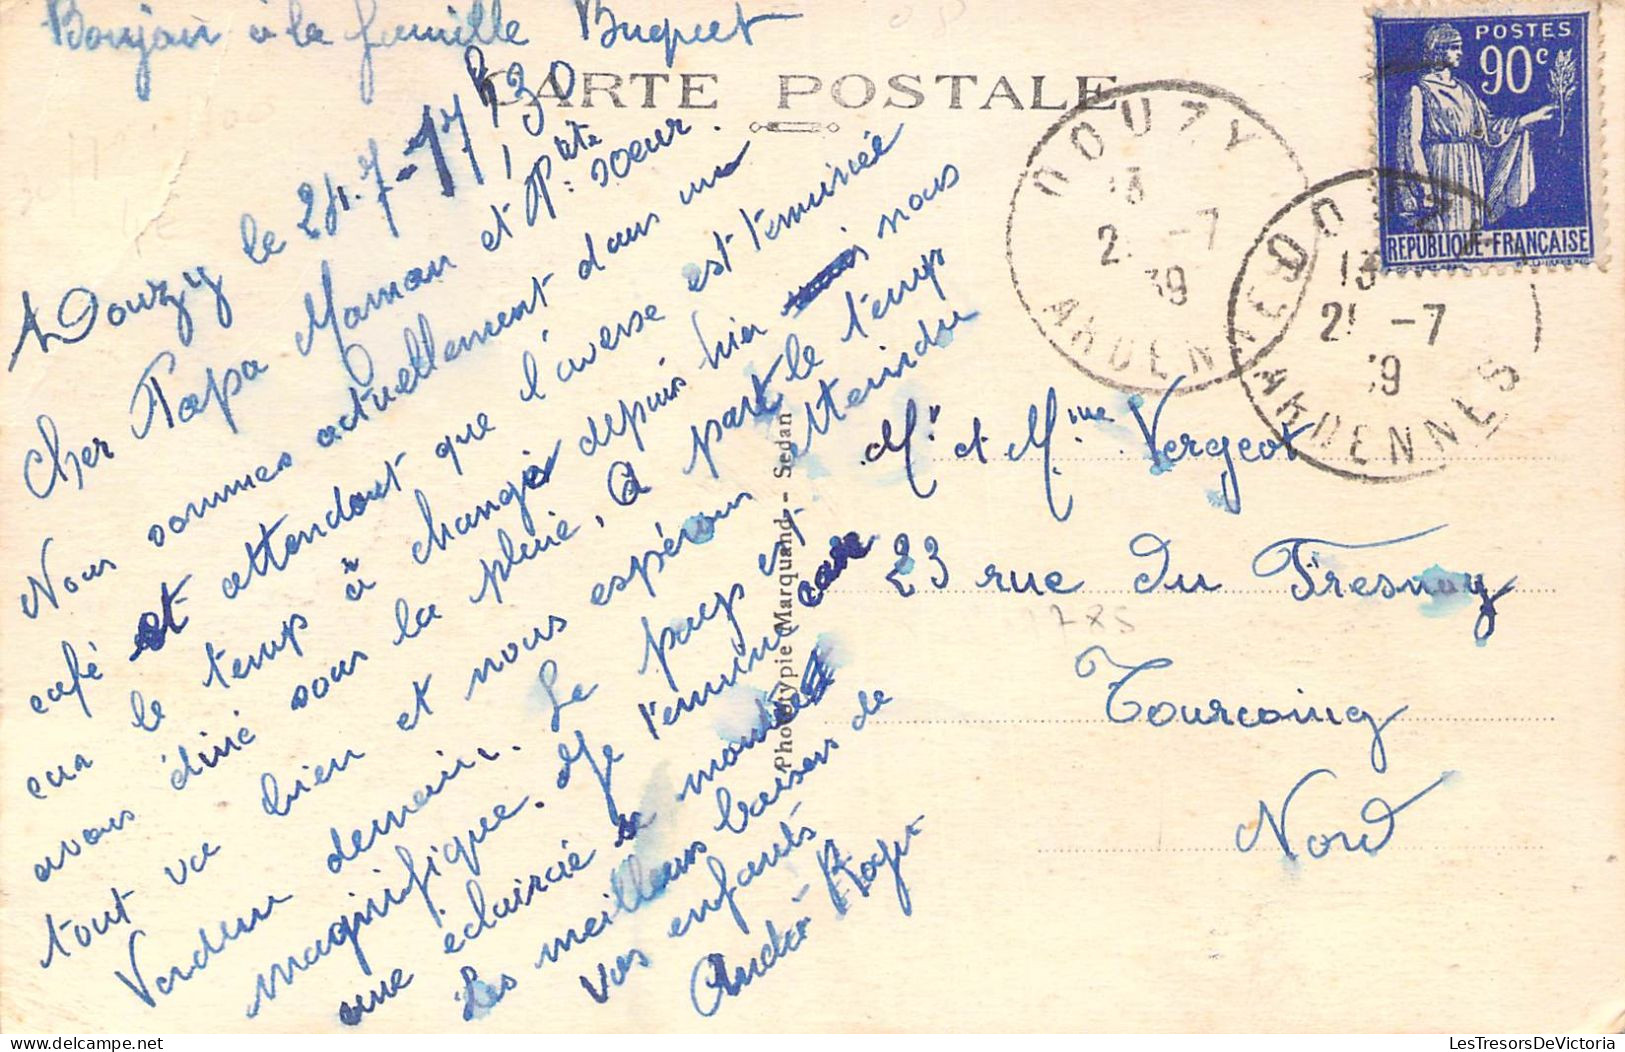 Bonjour à la famille Buquet
CARTE POSTALE
Douzy le 24.7-17h30
Cher Papa Maman et Ptite soeur.
Nous sommes actuellement dans un
café et attendont que l'averse est terminée
car le temp à changé depuis hier nous
avons diné sous la pluie, A part le temp
tout va bien et nous espérons atteindre
Verdun demain. Le pays est
magnifique. Je termine car
une éclaircie se montre
Les meilleurs baisers de
vos enfants
André Roger
Phototypie Marquand - Sedan
POSTES
90c
REPUBLIQUE FRANÇAISE
DOUZY
13
2 -7
39
ARDENNES
DOUZY
13
25 -7
39
ARDENNES
Mr et Mme Vergeot
23 rue du Fresnoy
Tourcoing
Nord
LesTresorsDeVictoria.com